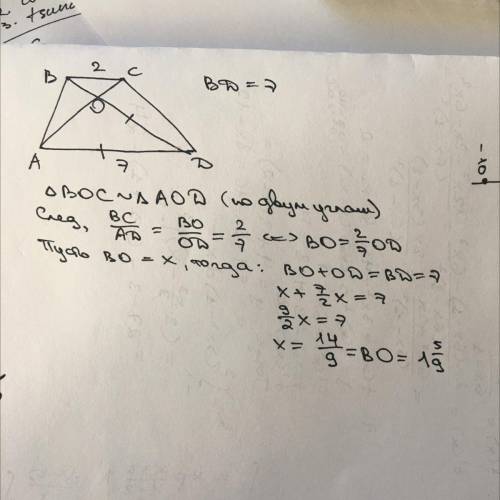 3. tsum
2
B
C
O
A
7
D
BD = 7
△BOC ~ △AOD (по двум углам)
След, BC/AD = BO/OD = 2/7 <=> BO = 2/7 OD
Пусть BO = x, тогда: BO + OD = BD = 7
x + 7/2 x = 7
9/2 x = 7
x = 14/9 = BO = 1 5/9